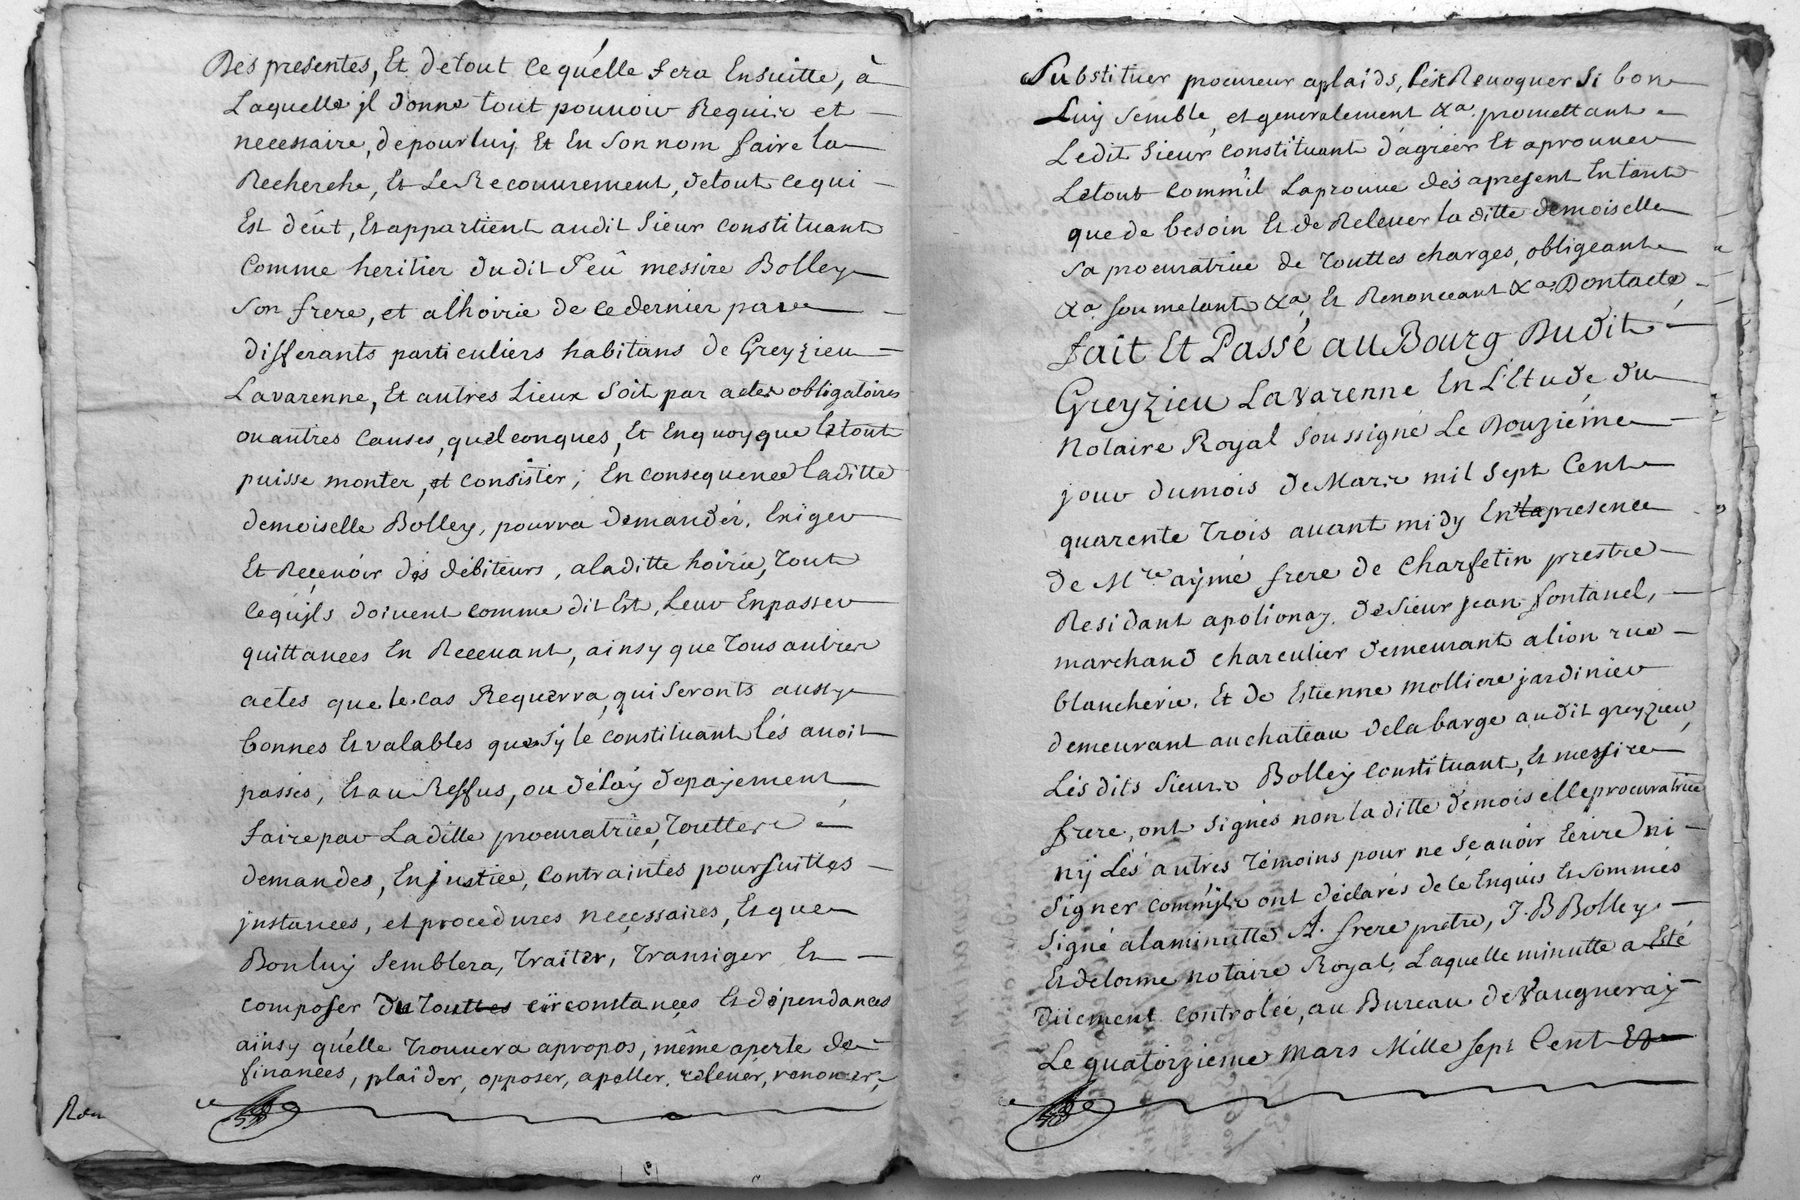 Des presentes, Et detout ce qu'elle fera Ensuitte, à
Laquelle jl donne tout pouvoir Requir et
necessaire, depour luy Et En Son nom faire la
Recherche, Et Le Recouurement, detout cequi
Est deût, Et appartient audit Sieur constituant
Comme heritier dudit feû messire Bolley
Son frere, et alhoirie de ce dernier par
differants particuliers habitans de Greyzieu
Lavarenne, Et autres Lieux Soit par actes obligatoires
ou autres Causes, quelconques, Et Enquoy que Letout
puisse monter, et consister; En consequence laditte
demoiselle Bolley, pourra demander, Exiger
Et Reçevoir des débiteurs, aladitte hoirie, Tout
cequ'jls doivent comme dit Est, Leur Enpasser
quittances En Recevant, ainsy que Tous autres
actes que le cas Requerra, qui Seronts aussy
bonnes Et valables que Sy le constituant lés avoit
passés, Et au Reffus, ou délay depajement
faire par Laditte procuratrice, Touttes
demandes, En justice, Contraintes poursuittes
jnstances, et procedures neçessaires, Et que
Bon luy Semblera, Traiter, Transiger Et
composer de Touttes circonstançes Et dépendances
ainsy qu'elle Trouuera apropos, même aperte de
finances, plaider, opposer, apeller, relever, renoncer,
Substituer procureur aplaids, Les Reuoquer Si bon
Luy Semble, et generalement &a. promettant
Ledit Sieur constituant d'agréer Et aprouuer
Letout comm'il Laprouue dés apresent Entant
que de besoin Et de Releuer la ditte demoiselle
Sa procuratrice de Touttes charges, obligeant
&a Soumetant &a, Et Renonceant &a. Dontacte
fait Et Passé au Bourg Dudit
Greyzieu Lavarenne En L'Etude du
Notaire Royal Soussigné Le Douziéme
jour dumois de Mars mil Sept Cent
quarente Trois auant midy En la presence
de Mre aymé frere de Charfetin prestre
Residant apolionay, de Sieur jean fontanel,
marchand charcutier demeurant alion rue
blancherie, Et de Estienne molliere jardinier
demeurant auchateau dela barge audit greyzieu,
Lésdits Sieurs Bolley Constituant, Et messire
frere, ont Signés non la ditte démoiselle procuratrice
ny Lés autres Témoins pour ne Sçauoir Ecrire ni
Signer comm'jls ont déclarés de ce Enquis Et Sommés
Signé alaminutte A. frere prétre, J. B Bolley
Et delorme notaire Royal, Laquelle minutte a Esté
Duement controlée, au Bureau de Vaugneray
Le quatorzieme Mars Mille Sept Cent